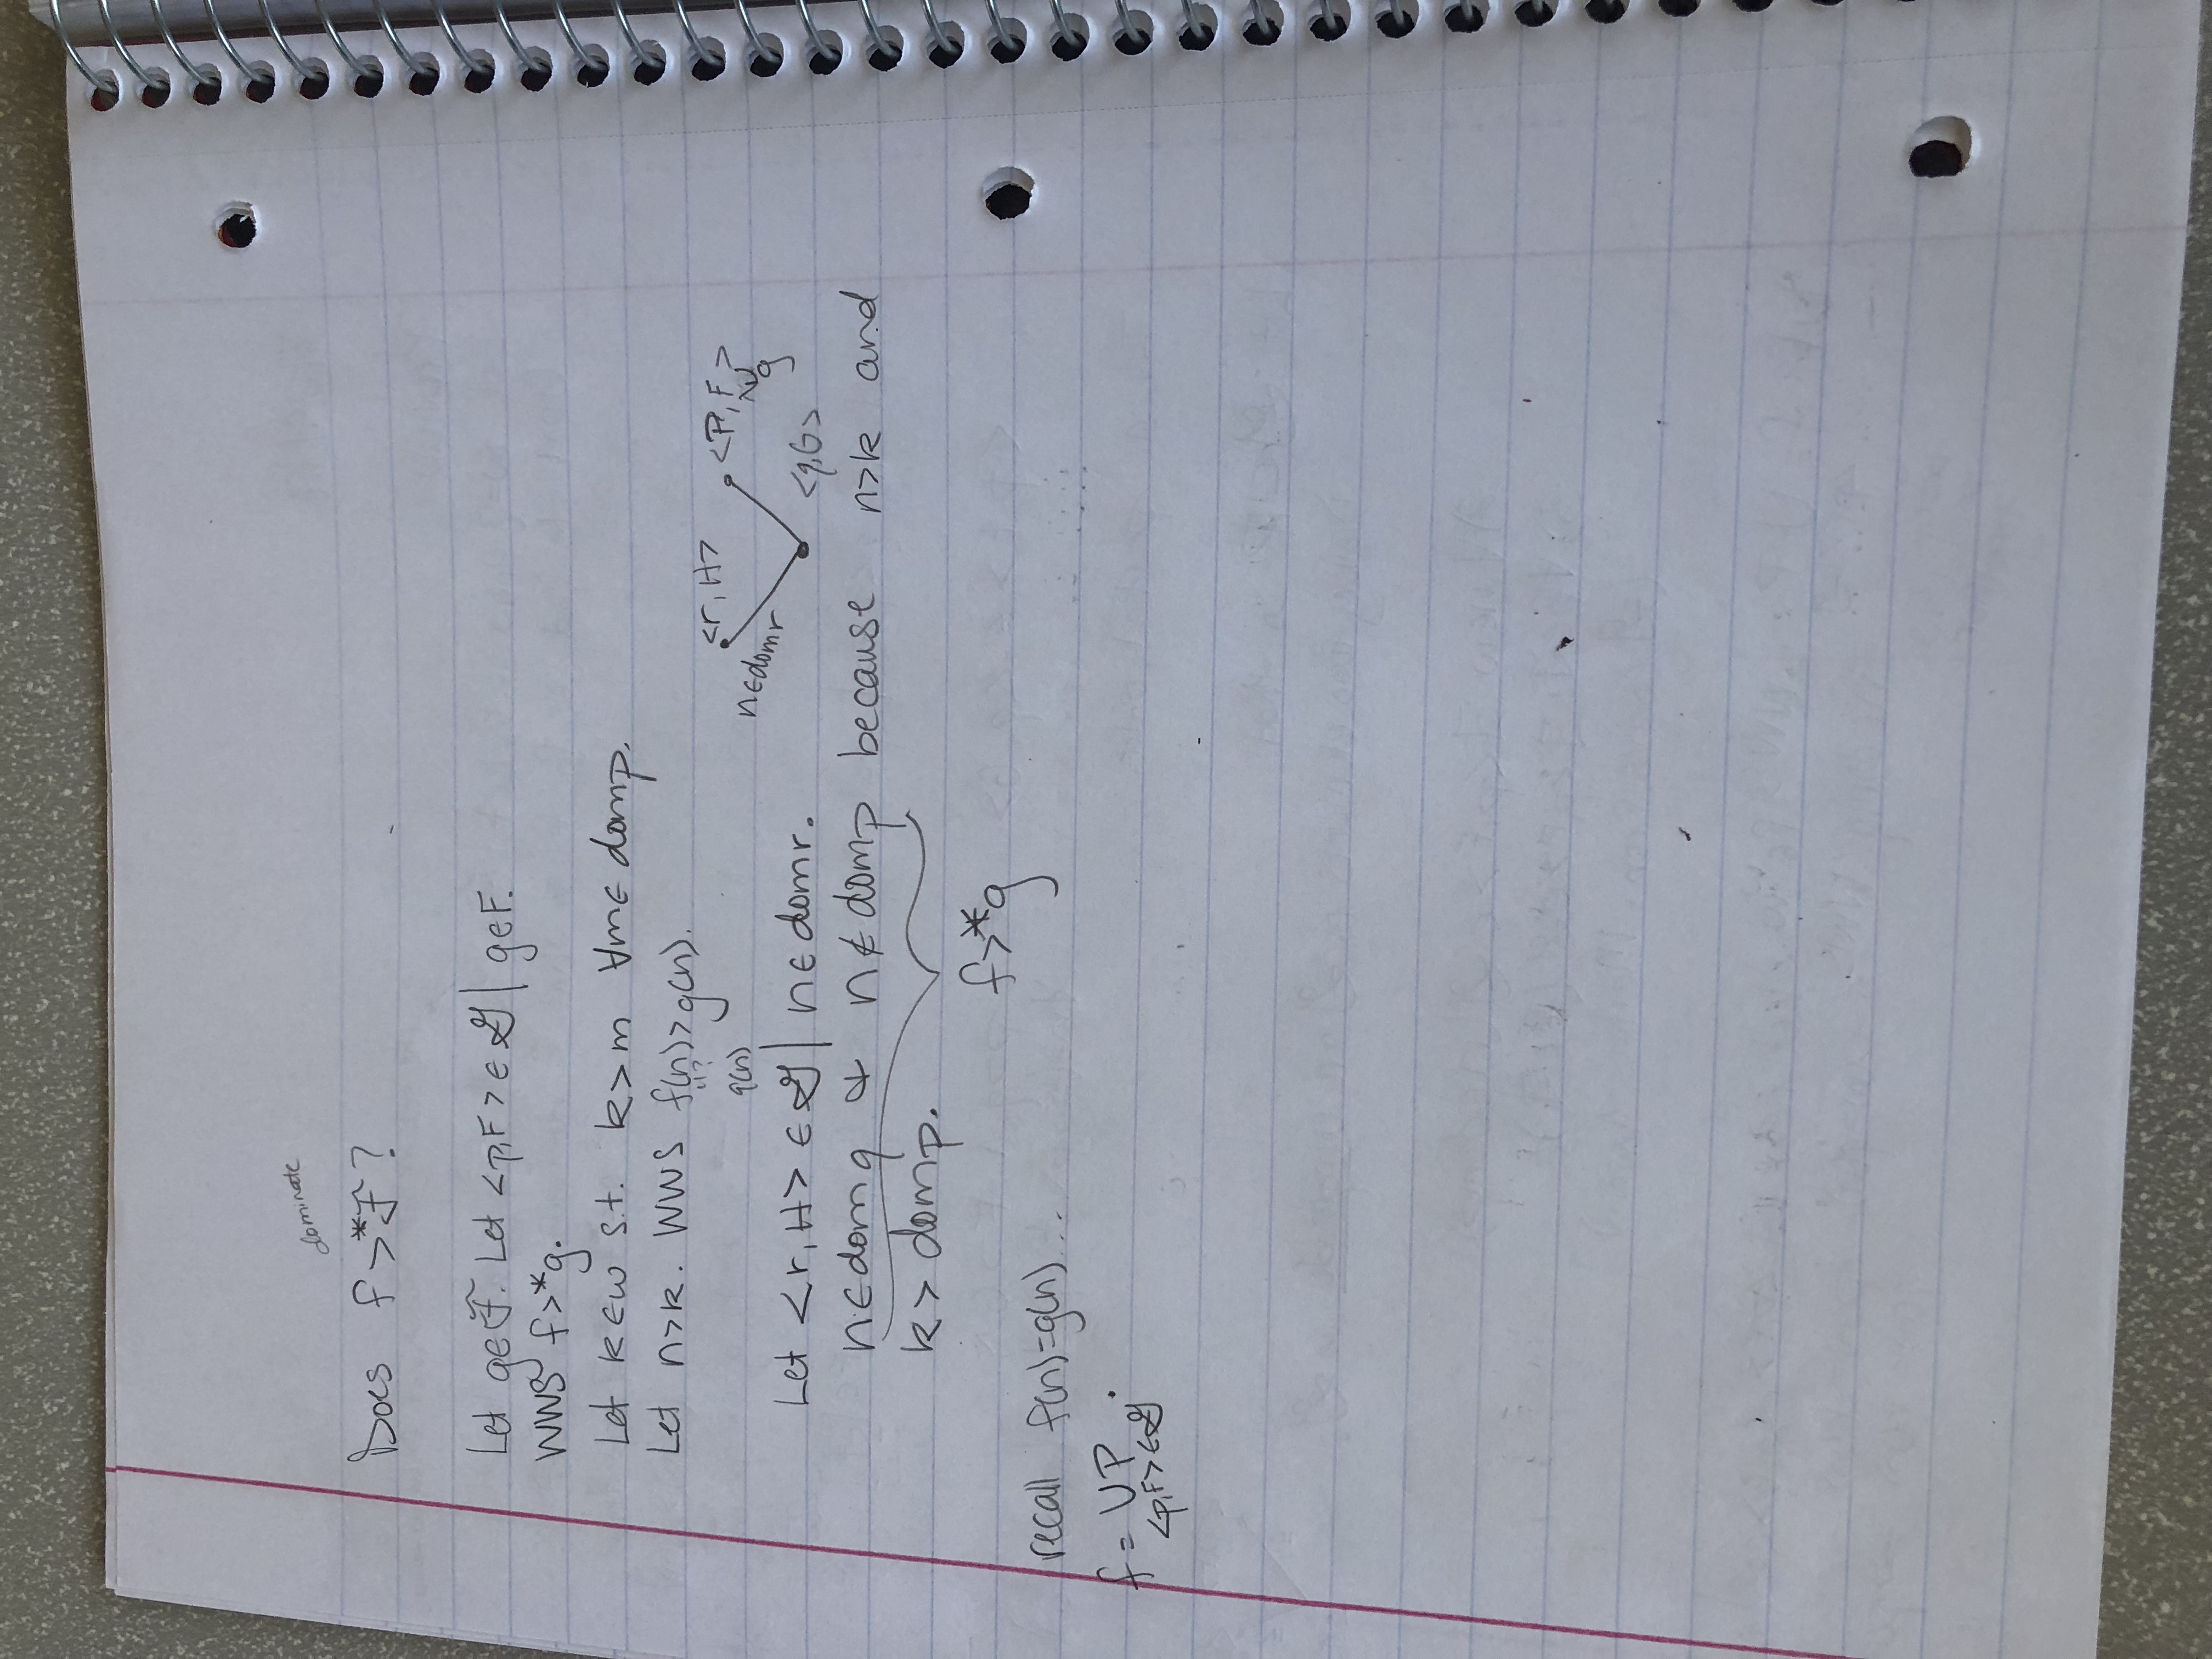 dominate
Does f >* ℱ ?
Let g∈ℱ. Let <p,F> ∈ 𝒢 | g∈F.
WWS f>*g.
Let k∈w s.t. k>m ∀m∈ domp.
Let n>k. WWS f(n)>g(n).
"?
q(n)
<r, H>
<P, F>
n∈domr
g
<q,G>
Let <r, H> ∈ 𝒢 | n∈domr.
n∈domq & n∉domp because n>k and
k> domp.
f>*g
recall f(n)=g(n)...
f = ∪P
<p,F>∈𝒢